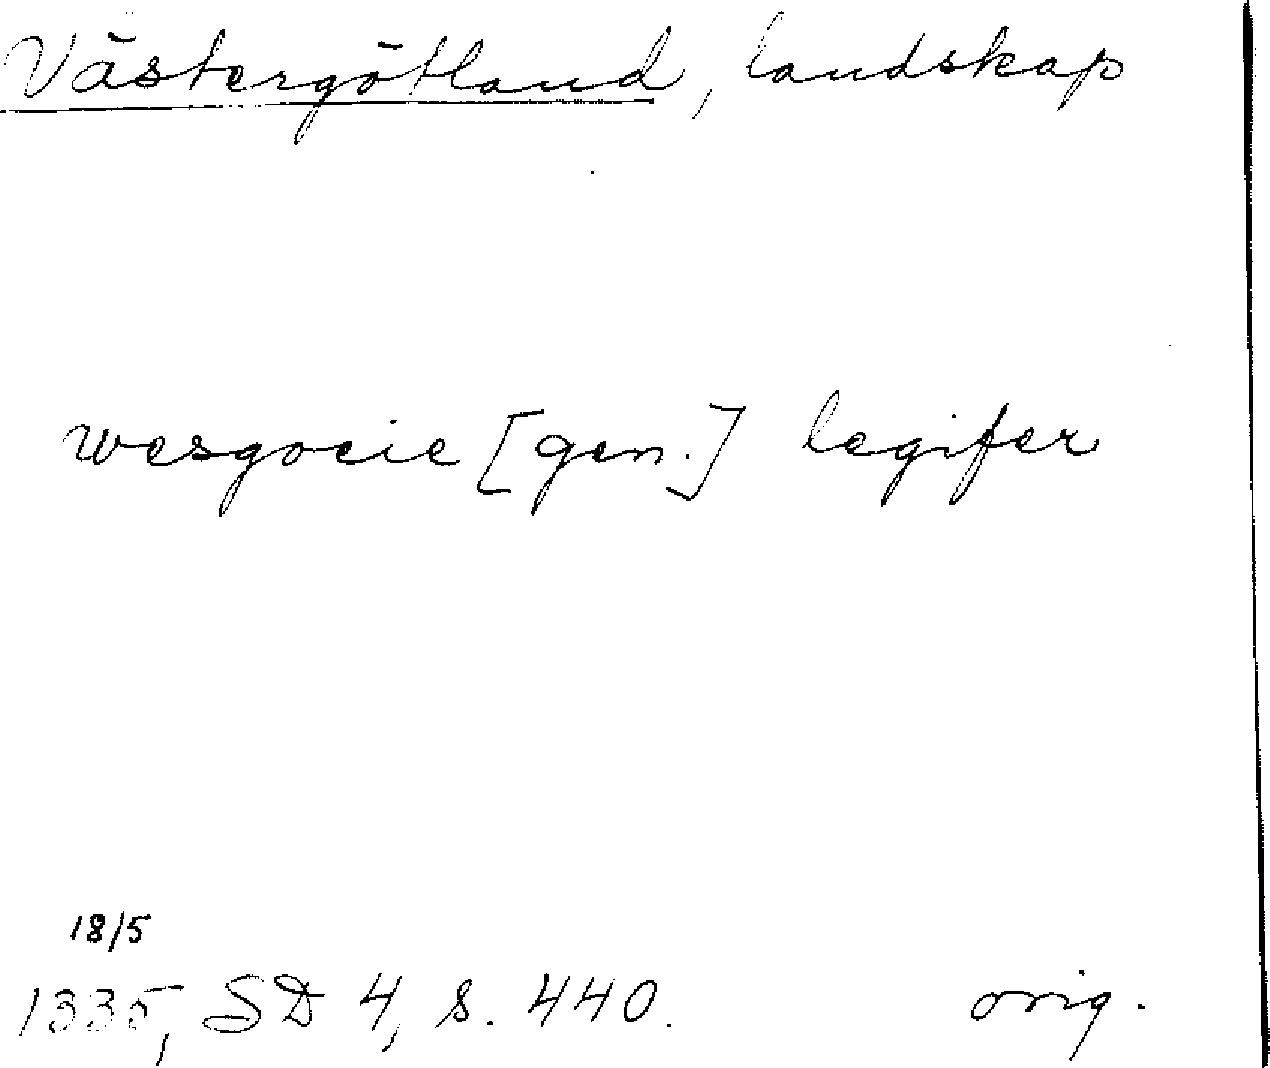 Västergötland, landskap
wesgocie [gen.] legifer
18/5
1335, SD 4, s. 440. orig.